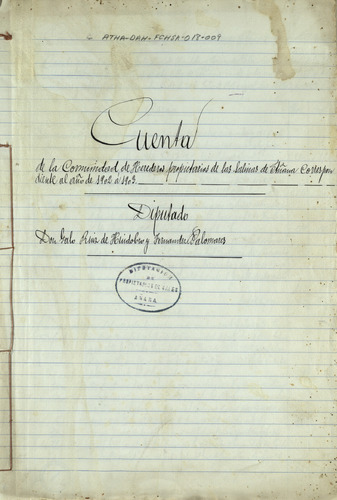 ATHA-DAH-FCHSA-018-009
Cuenta
de la Comunidad de Herederos propietarios de las Salinas de Añana Correspon
diente al año de 1902 a 1903
Diputado
Don Galo Ruiz de Huidobro y Fernandez Palomares
DIPUTACION
DE
PROPIETARIOS DE
AÑANA